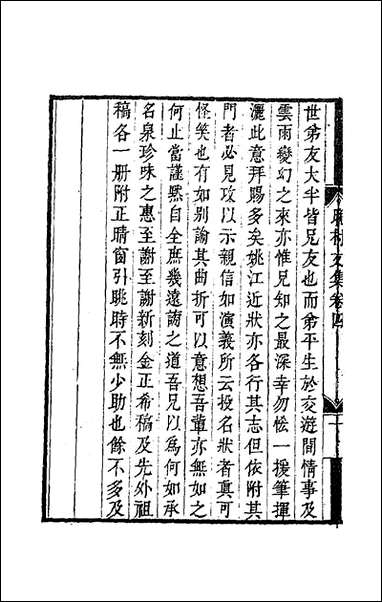 晚村文集卷四
世弟友大半皆兄友也而弟平生於交遊間情事及
雲雨變幻之來亦惟兄知之最深幸勿恡一援筆揮
灑此意拜賜多矣姚江近狀亦各行其志但依附其
門者必見攻以示親信如演義所云投名狀者真可
怪笑也有如別諭其曲折可以意想吾輩亦無如之
何止當謹默自全庶幾遠謗之道吾兄以爲何如承
名泉珍味之惠至謝至謝新刻金正希稿及先外祖
稿各一册附正晴窗引眺時不無少助也餘不多及